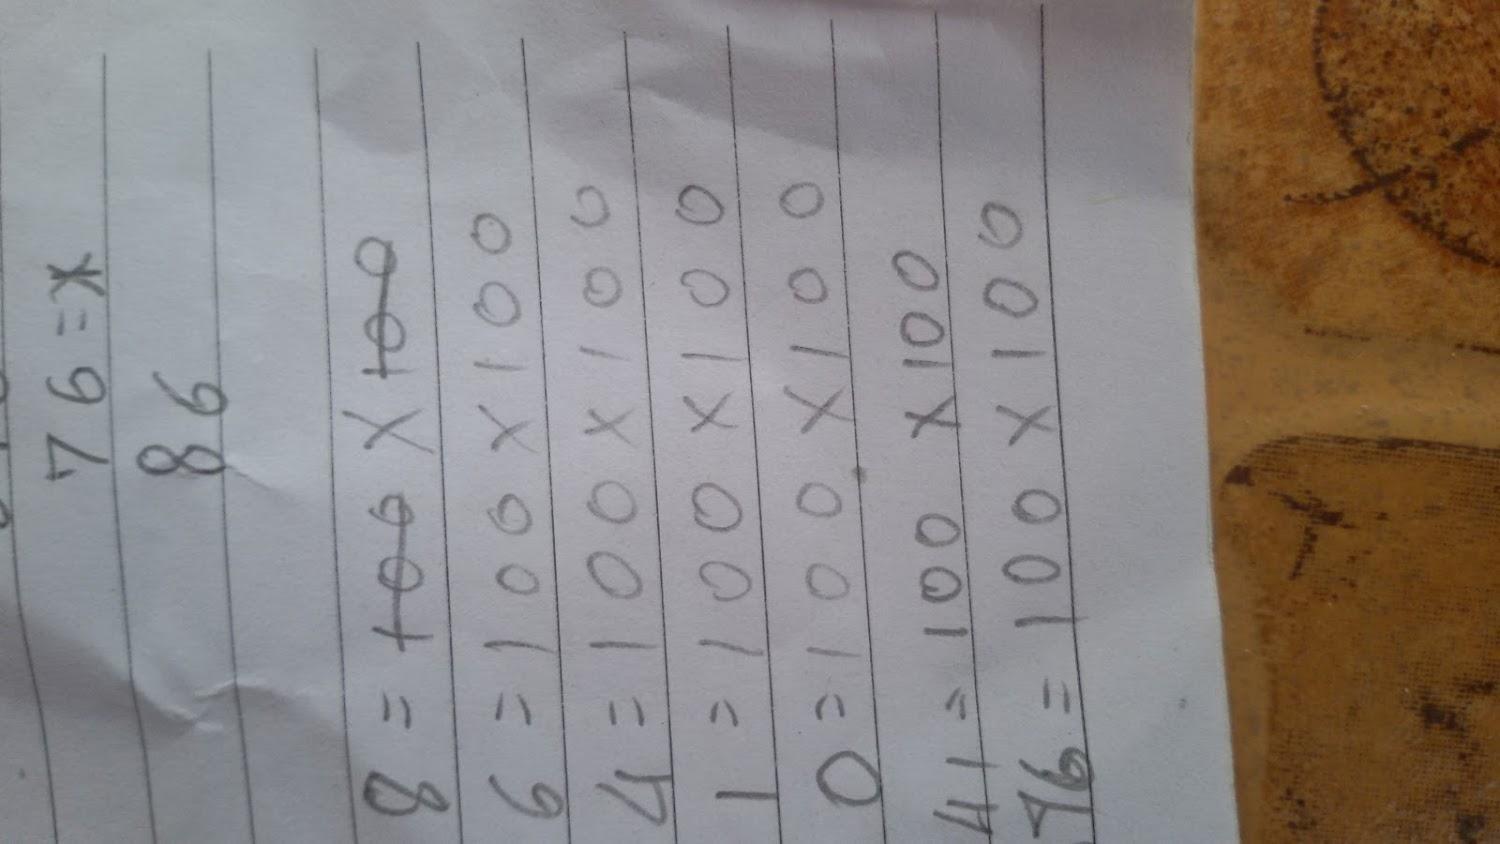 76=x
86
8 = 100 X 100
6 = 100 X 100
4 = 100 X 100
1 = 100 X 100
0 = 100 X 100
41 = 100 X 100
76 = 100 X 100